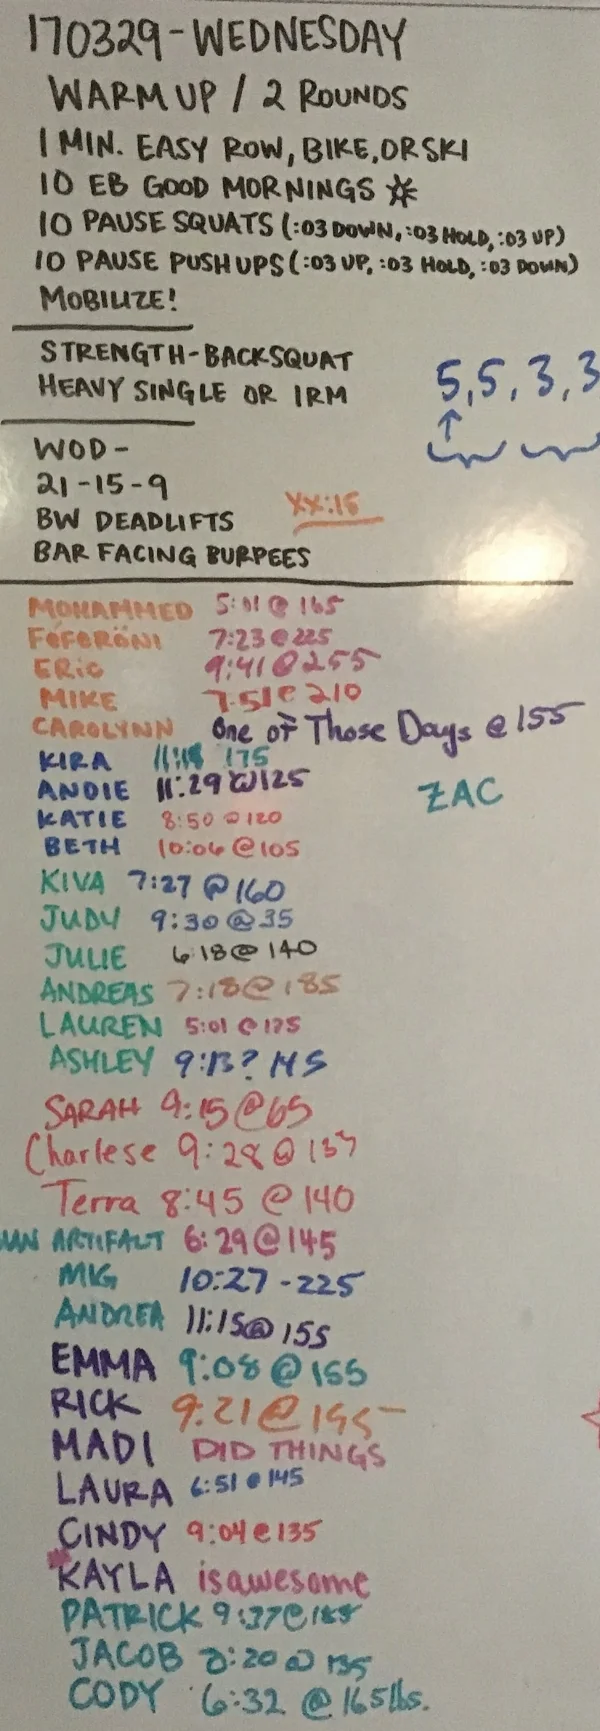 170329-WEDNESDAY
WARM UP / 2 ROUNDS
1 MIN. EASY ROW, BIKE, OR SKI
10 EB GOOD MORNINGS
10 PAUSE SQUATS (:03 DOWN, :03 HOLD, :03 UP)
10 PAUSE PUSHUPS (:03 UP, :03 HOLD, :03 DOWN)
MOBILIZE!
STRENGTH-BACKSQUAT
HEAVY SINGLE OR 1RM
5, 5, 3, 3
WOD -
21-15-9
BW DEADLIFTS
XX:15
BAR FACING BURPEES
MOHAMMED 5:01 @ 165
7:23 @ 225
ERIC 9:41 @ 255
MIKE 7:51 @ 210
CAROLYNN One of Those Days @ 155
KIRA 175
ANDIE 11:29 @ 125
ZAC
KATIE 8:50 @ 120
BETH 10:06 @ 105
KIVA 7:27 @ 160
JUDY 9:30 @ 35
JULIE 6:18 @ 140
ANDREAS 7:18 @ 185
LAUREN 5:01 @ 125
ASHLEY
SARAH 9:15 @ 65
Charlese 9:28 @
Terra 8:45 @ 140
ARTIFACT 6:29 @ 145
MIG 10:27 - 225
ANDREA 11:15 @ 155
EMMA 9:08 @ 155
RICK 9:21 @
MADI DID THINGS
LAURA 6:51 @ 145
CINDY 9:04 @ 135
KAYLA is awesome
PATRICK 9:37 @
JACOB 8:20 @ 135
CODY 6:32 @ 165 lbs.